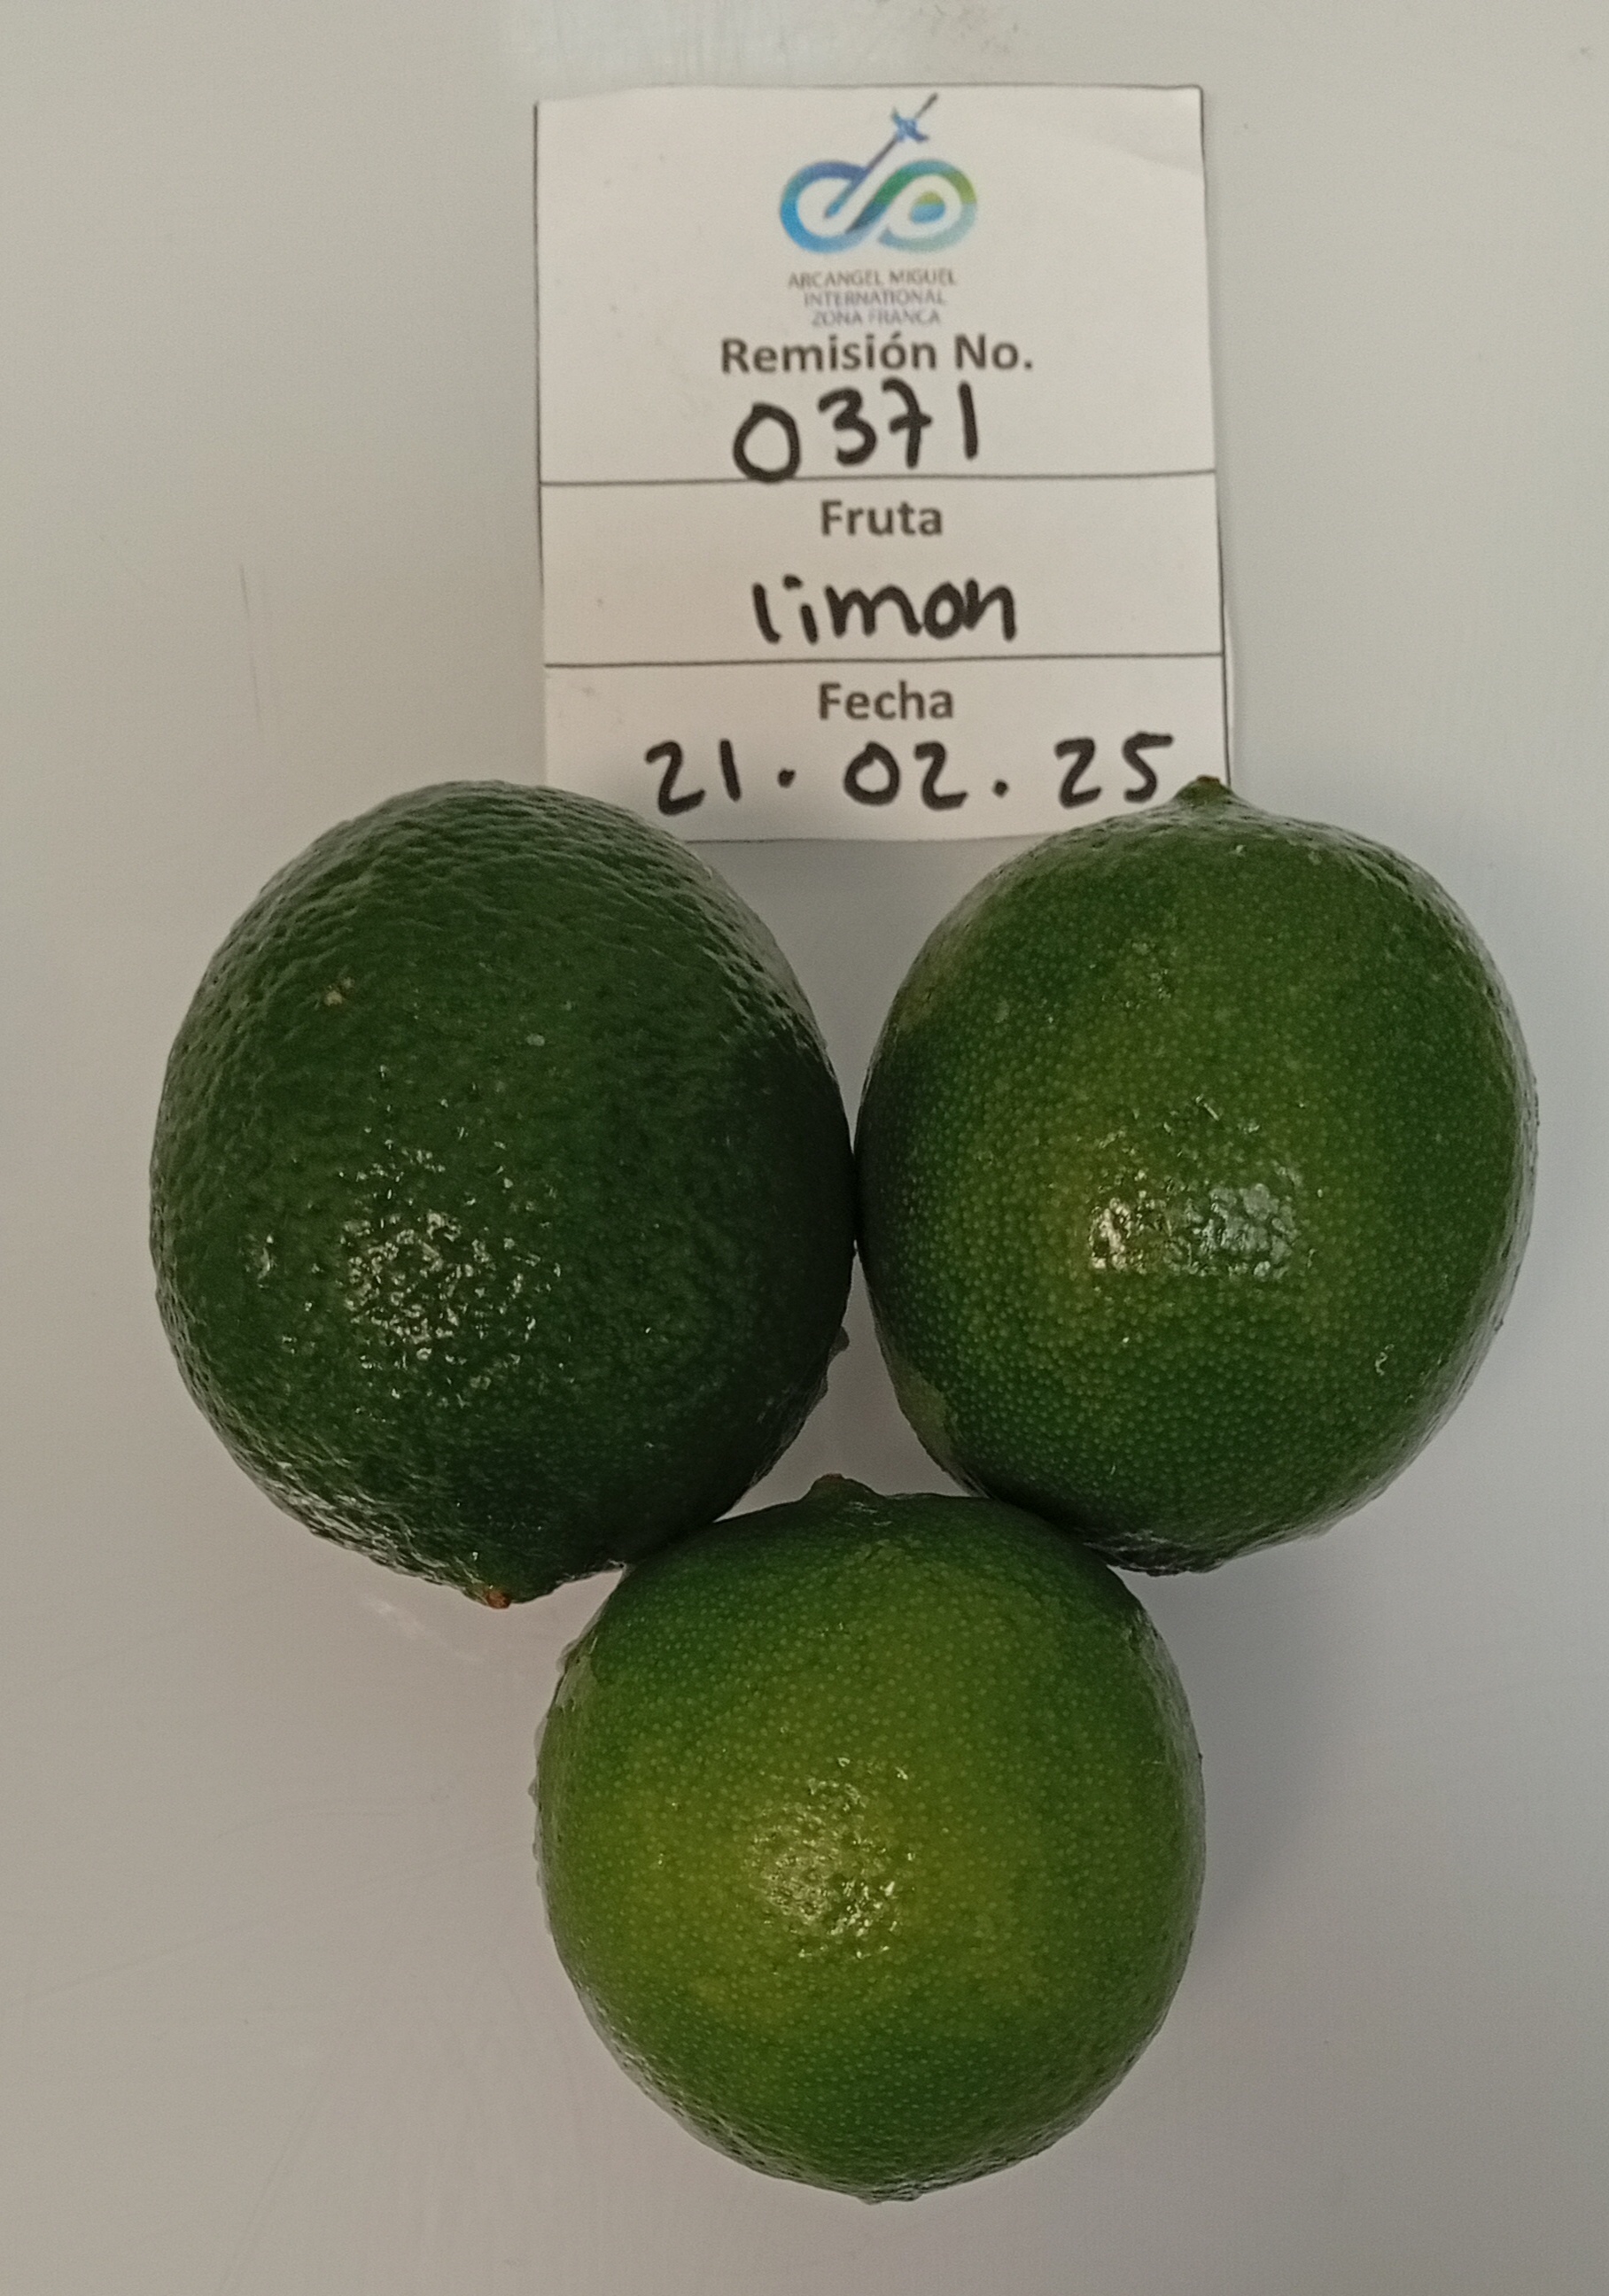 ARCANGEL MIGUEL
INTERNATIONAL
ZONA FRANCA
Remisión No.
0371
Fruta
limon
Fecha
21.02.25